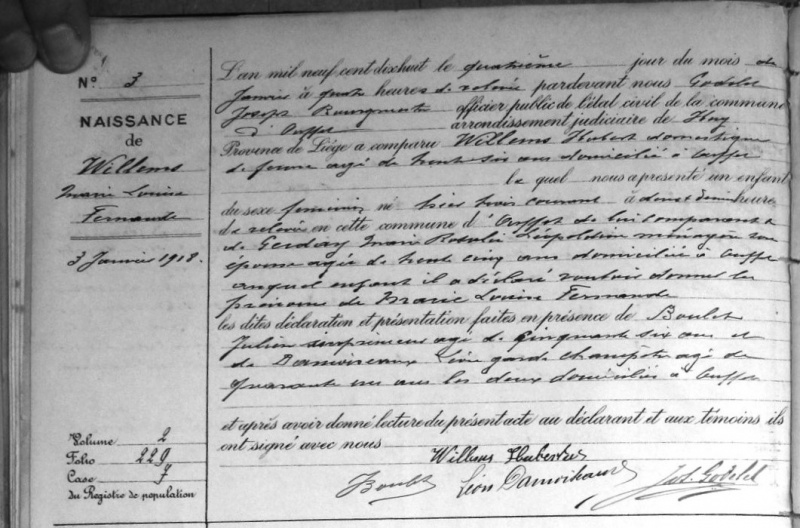 N° 3
NAISSANCE
de
Willems
Marie Louise
Fernande
3 Janvier 1918.
Volume 2
Folio 229
Case 7
du Registre de population
L'an mil neuf cent dixhuit le quatrième jour du mois de
Janvier à quatre heures de relevée pardevant nous Godelet
Joseph Bourgmestre officier public de l'état civil de la commune
d'Ouffet arrondissement judiciaire de Huy
Province de Liége a comparu Willems Hubert domestique
de ferme agé de trente six ans domicilié à Ouffet
lequel nous a présenté un enfant
du sexe feminin né hier trois courant à demie heure
de relevée en cette commune d'Ouffet de lui comparant &
de Gerday Marie Léopoldine ménagère son
épouse agée de trente cinq ans domiciliée à Ouffet
auquel enfant il a déclaré vouloir donner les
prénoms de Marie Louise Fernande
les dites déclaration et présentation faites en présence de Boulet
Julien agé de cinquante six ans et
de Damoiseaux Léon garde champêtre agé de
quarante un ans les deux domiciliés à Ouffet
et après avoir donné lecture du présent acte au déclarant et aux témoins ils
ont signé avec nous
Willems Hubert
JBoulet Léon Damoiseaux Jos. Godelet